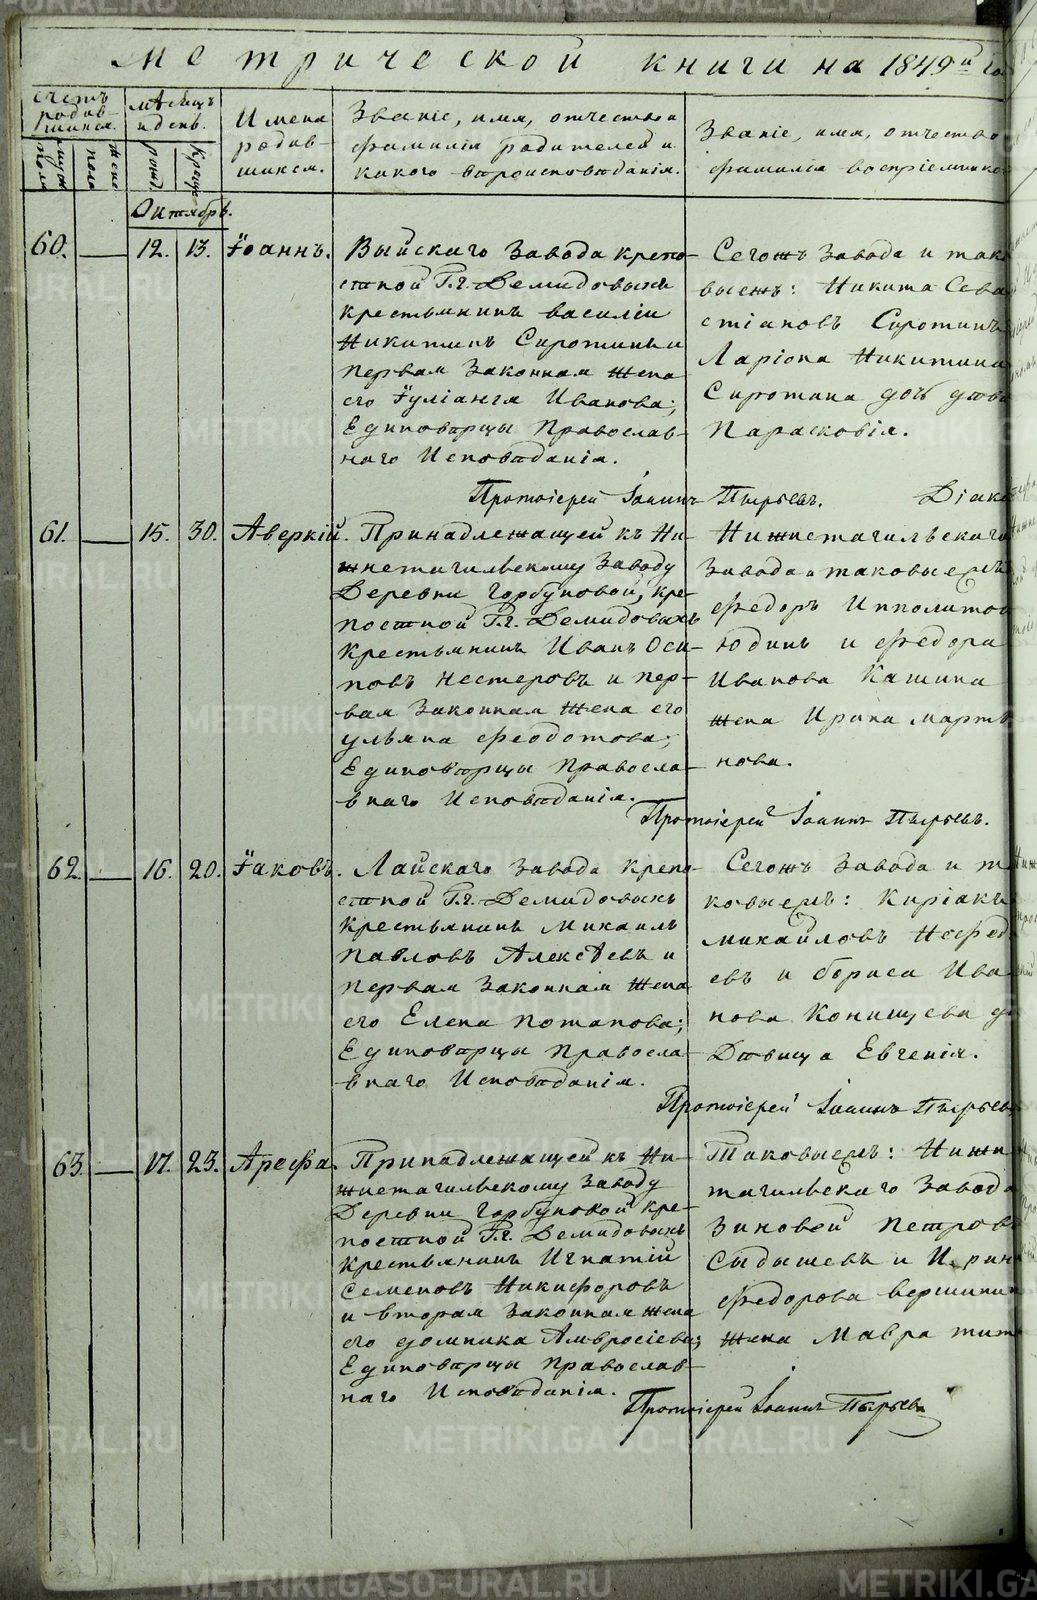 Метрической книги на 1849й го
Счетъ родив-шихся.
Мѣсяцъ и день.
Имена родив-шихся.
Званіе, имя, отчество и фамилія родителей и какого вѣроисповѣданія.
Званіе, имя, отчество фамилія воспріемнико
муж пола
жен пола
рожд
крещ
Октябрь.
60. — 12. 13. Іоаннъ.
Выйскаго завода крепо-
стной Г.г. Демидовыхъ
крестьянинъ Василій
Никитинъ Сиротинъ и
первая законная жена
его Іуліанія Иванова;
Единовѣрцы Православ-
наго Исповѣданія.
Сегожъ завода и так
выежъ: Никита Сева
стіановъ Сиротинъ
Ларіона Никитина
Сиротина дочь дѣви
Парасковія.
Протоіерей Іоаннъ Пырьевъ. Діако
61. — 15. 30. Аверкій.
Принадлежащей къ Ни-
жнетагильскому заводу
Деревни Горбуновой, кре-
постной Г.г. Демидовыхъ
крестьянинъ Иванъ Оси-
повъ Нестеровъ и пер-
вая законная жена его
Ульяна Феодотова;
Единовѣрцы Правосла-
внаго Исповѣданія.
Нижнетагильскаго
завода и таковыежъ
Федоръ Ипполитов
Юдинъ и Федора
Иванова Кашина
жена Ирина Март
нова.
Протоіерей Іоаннъ Пырьевъ.
62. — 16. 20. Іаковъ.
Лайскаго завода крепо-
стной Г.г. Демидовыхъ
крестьянинъ Михаилъ
Павловъ Алексѣевъ и
первая законная жена
его Елена Потапова;
Единовѣрцы Правосла-
внаго Исповѣданія.
Сегожъ завода и та
ковыежъ: Киріакъ
Михайловъ Нефед
евъ и Бориса Ива
нова Конищева до
Дѣвица Евгенія.
Протоіерей Іоаннъ Пырьевъ
63. — 17. 23. Арефа.
Принадлежащей къ Ни-
жнетагильскому заводу
Деревни Горбуновой кре-
постной Г.г. Демидовыхъ
крестьянинъ Игнатій
Семеновъ Никифоровъ
и вторая законная жена
его Домника Амвросіева;
Единовѣрцы Православ-
наго Исповѣданія.
Таковыежъ: Нижн
тагильскаго завода
Зиновей Петров
Сыдышевъ и Ирин
Федорова Вершинин
жена Мавра Тит
Протоіерей Іоаннъ Пырьевъ
METRIKI.GASO-URAL.RU